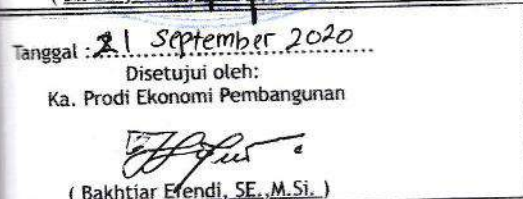 Tanggal : 21 September 2020
Disetujui oleh:
Ka. Prodi Ekonomi Pembangunan
( Bakhtiar Efendi, SE.,M.Si. )